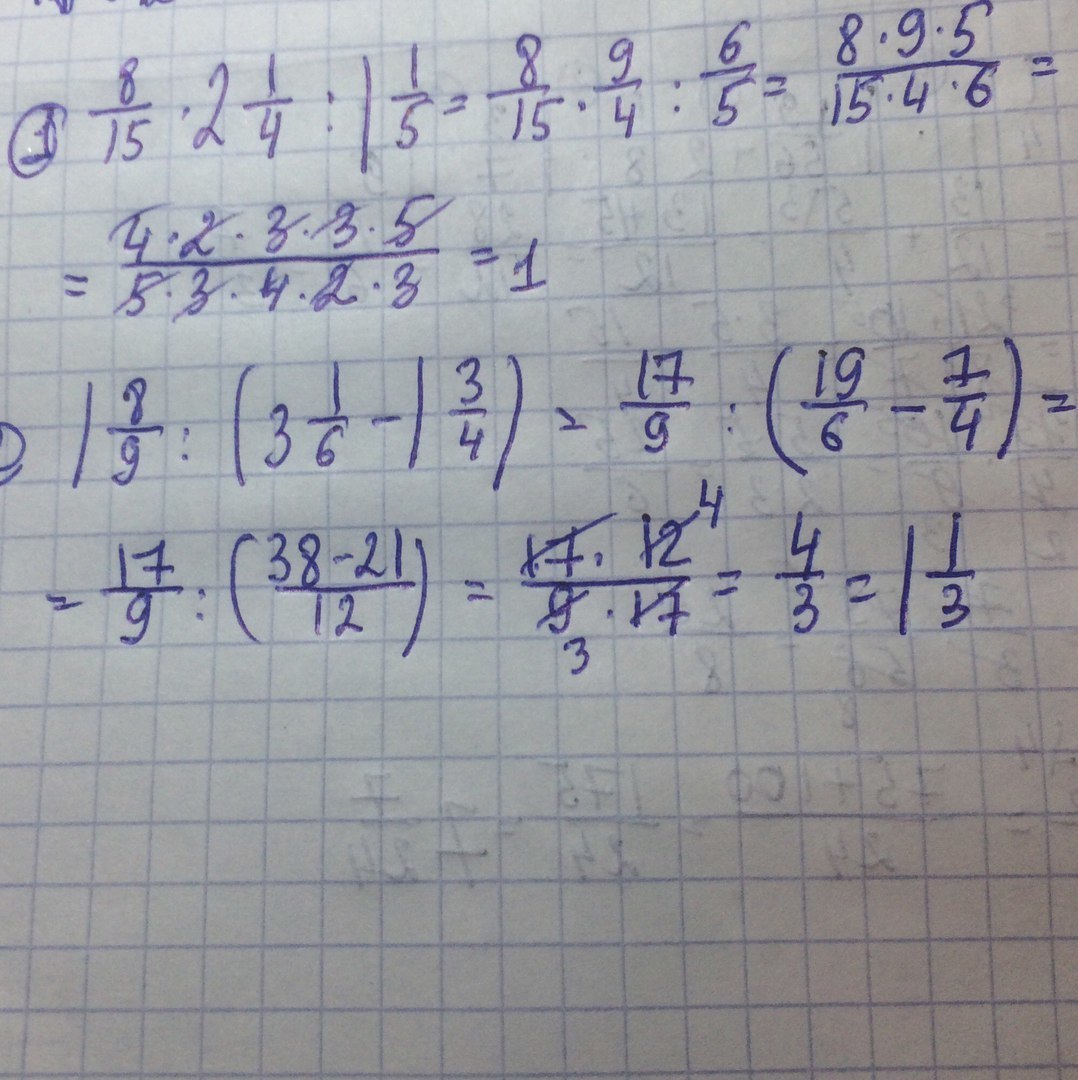 ① 8/15 · 2 1/4 : 1 1/5 = 8/15 · 9/4 : 6/5 = 8·9·5/15·4·6 =
= 4·2·3·3·5/5·3·4·2·3 = 1
1 8/9 : (3 1/6 - 1 3/4) = 17/9 : (19/6 - 7/4) =
= 17/9 : (38-21/12) = 17·12 4/9·17 3 = 4/3 = 1 1/3